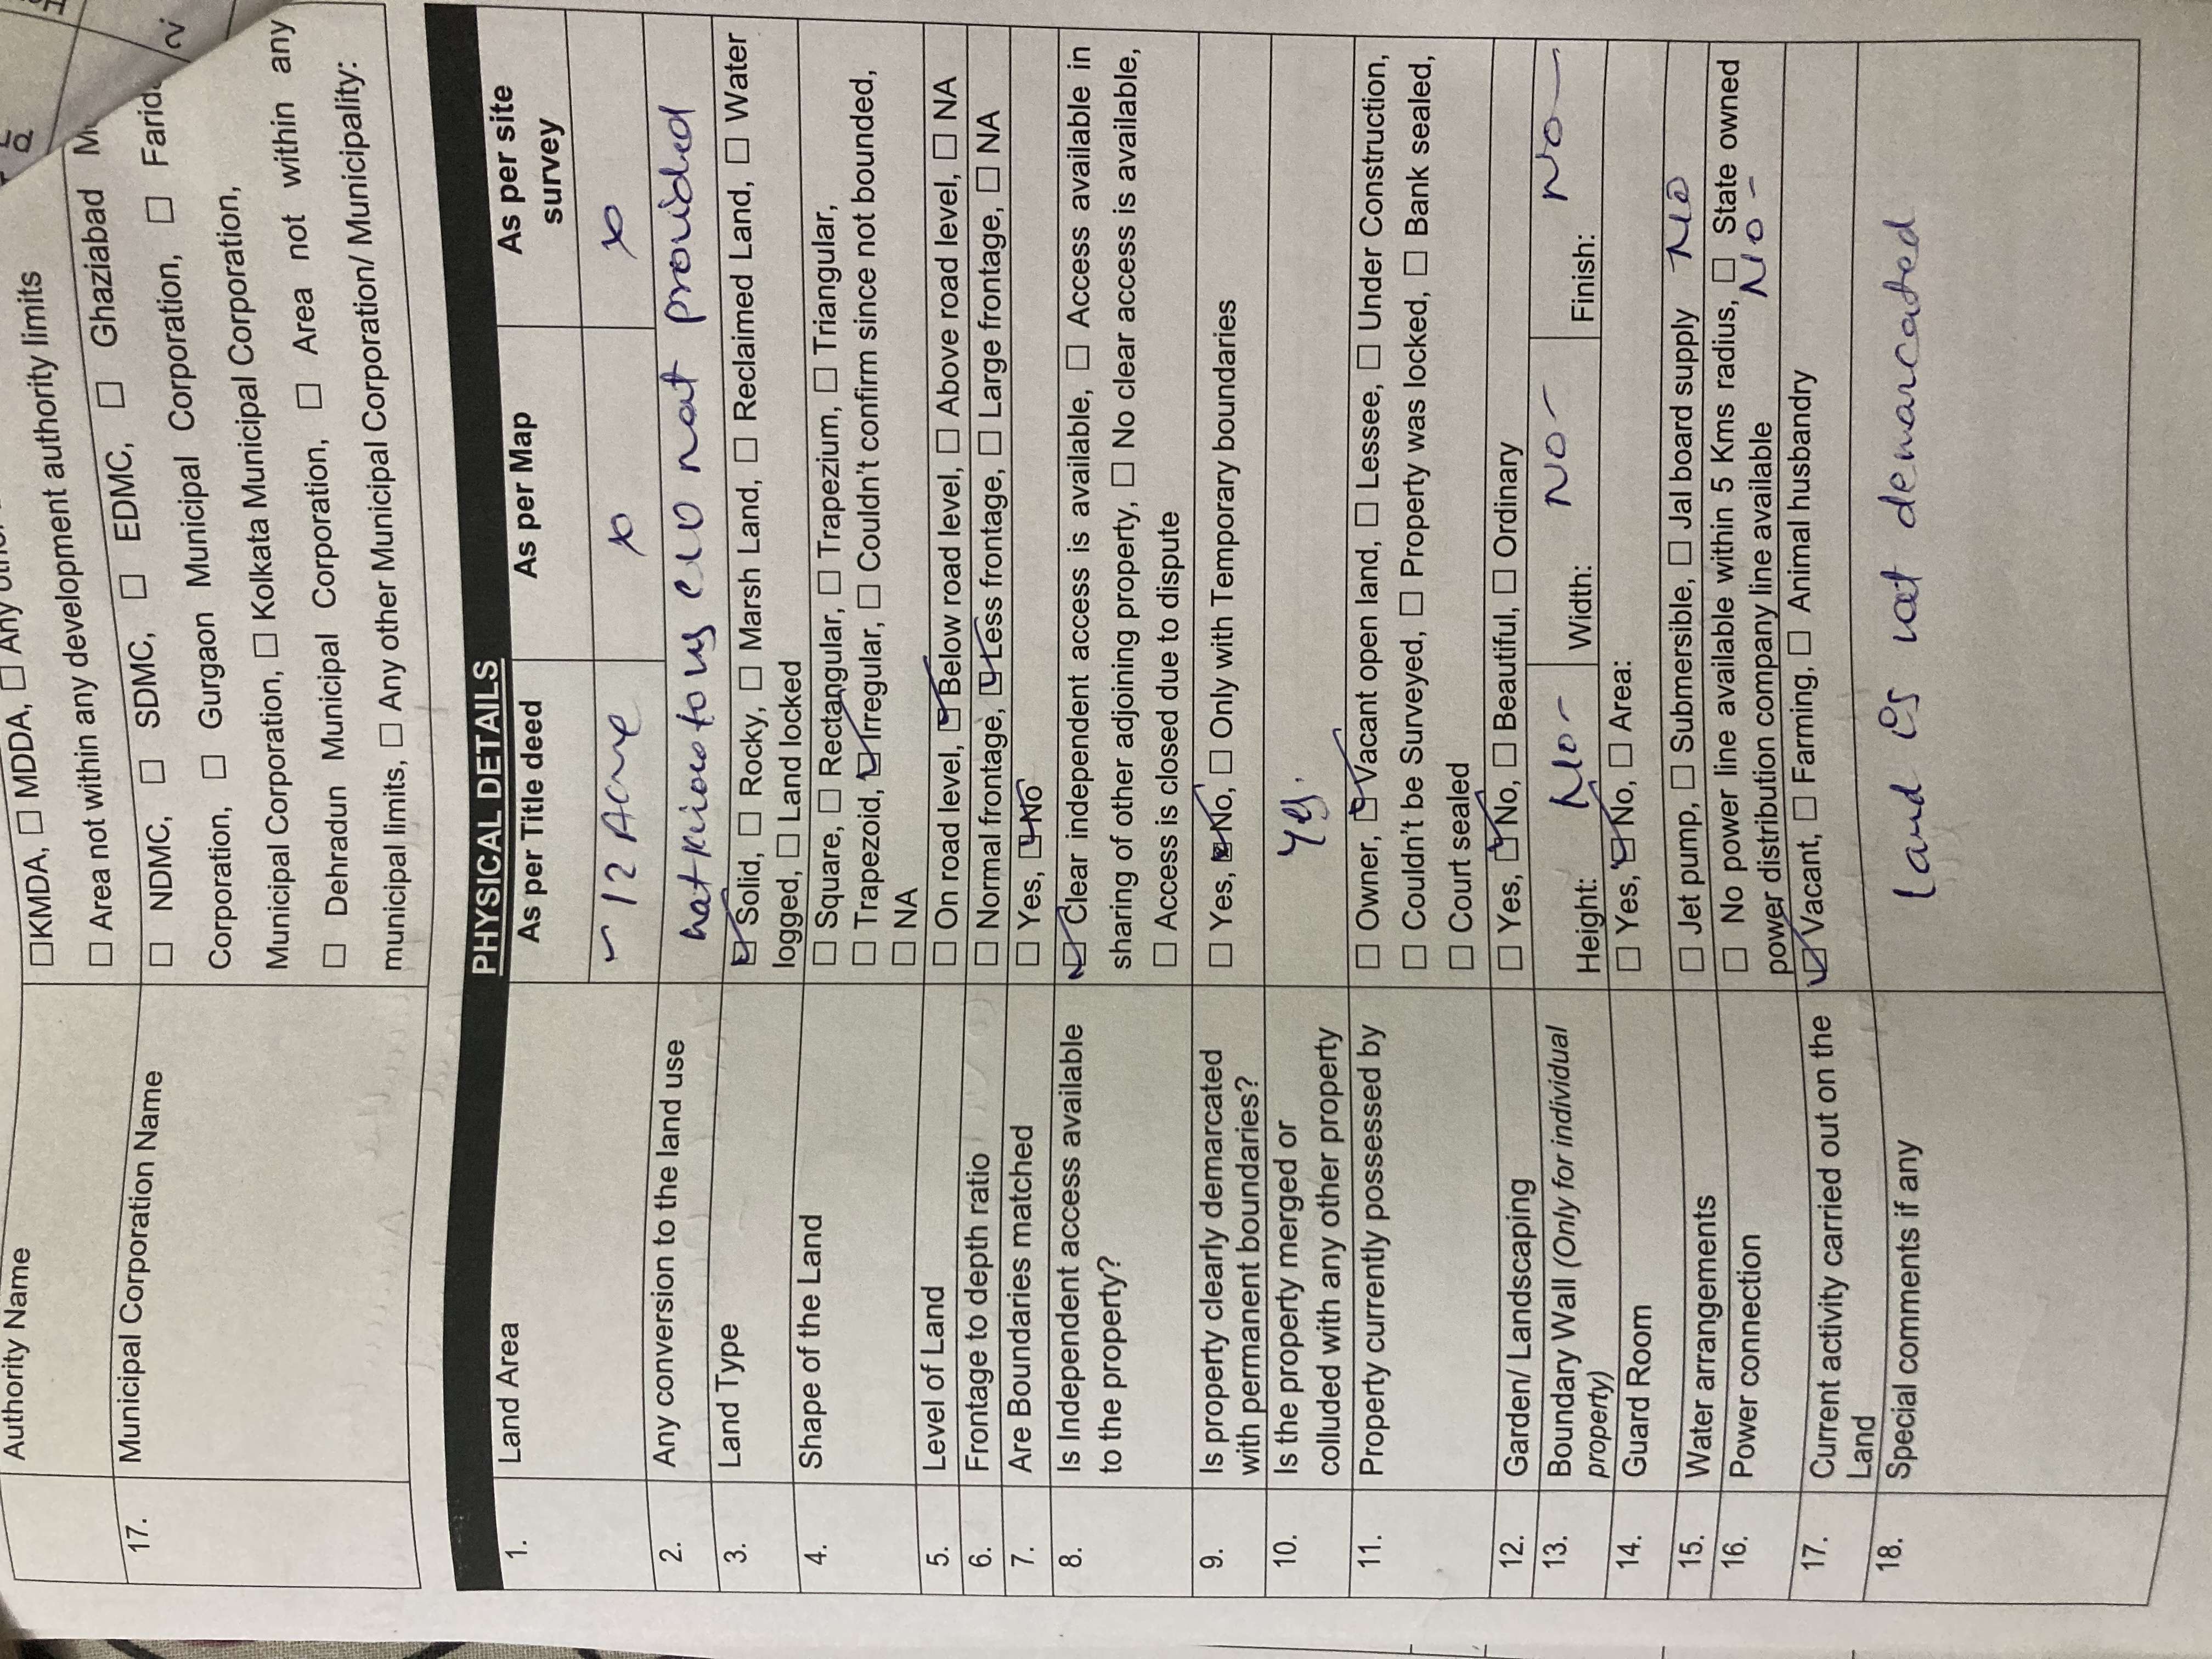 Authority Name
☐KMDA, ☐ MDDA, ☐
☐ Area not within any development authority limits
17. Municipal Corporation Name
☐ NDMC, ☐ SDMC, ☐ EDMC, ☐ Ghaziabad
Corporation, ☐ Gurgaon Municipal Corporation, ☐
Municipal Corporation, ☐ Kolkata Municipal Corporation,
☐ Dehradun Municipal Corporation, ☐ Area not within any
municipal limits, ☐ Any other Municipal Corporation/ Municipality:
PHYSICAL DETAILS
As per Title deed As per Map As per site
survey
1. Land Area
~ 12 Acre x x
2. Any conversion to the land use
not known to us CLU not provided
3. Land Type ☑ Solid, ☐ Rocky, ☐ Marsh Land, ☐ Reclaimed Land, ☐ Water
logged, ☐ Land locked
4. Shape of the Land ☐ Square, ☐ Rectangular, ☐ Trapezium, ☐ Triangular,
☐ Trapezoid, ☑ Irregular, ☐ Couldn't confirm since not bounded,
☐ NA
5. Level of Land ☐ On road level, ☑ Below road level, ☐ Above road level, ☐ NA
6. Frontage to depth ratio ☐ Normal frontage, ☑ Less frontage, ☐ Large frontage, ☐ NA
7. Are Boundaries matched ☐ Yes, ☑ No
8. Is Independent access available ☑ Clear independent access is available, ☐ Access available in
to the property? sharing of other adjoining property, ☐ No clear access is available,
☐ Access is closed due to dispute
9. Is property clearly demarcated ☐ Yes, ☑ No, ☐ Only with Temporary boundaries
with permanent boundaries?
10. Is the property merged or Yes.
colluded with any other property
11. Property currently possessed by ☐ Owner, ☑ Vacant open land, ☐ Lessee, ☐ Under Construction,
☐ Couldn't be Surveyed, ☐ Property was locked, ☐ Bank sealed,
☐ Court sealed
12. Garden/ Landscaping ☐ Yes, ☑ No, ☐ Beautiful, ☐ Ordinary
13. Boundary Wall (Only for individual
property) Height: No - Width: No - Finish: No -
14. Guard Room ☐ Yes, ☑ No, ☐ Area:
15. Water arrangements ☐ Jet pump, ☐ Submersible, ☐ Jal board supply No
16. Power connection ☐ No power line available within 5 Kms radius, ☐ State owned
power distribution company line available No -
17. Current activity carried out on the ☑ Vacant, ☐ Farming, ☐ Animal husbandry
Land
18. Special comments if any
Land is not demarcated